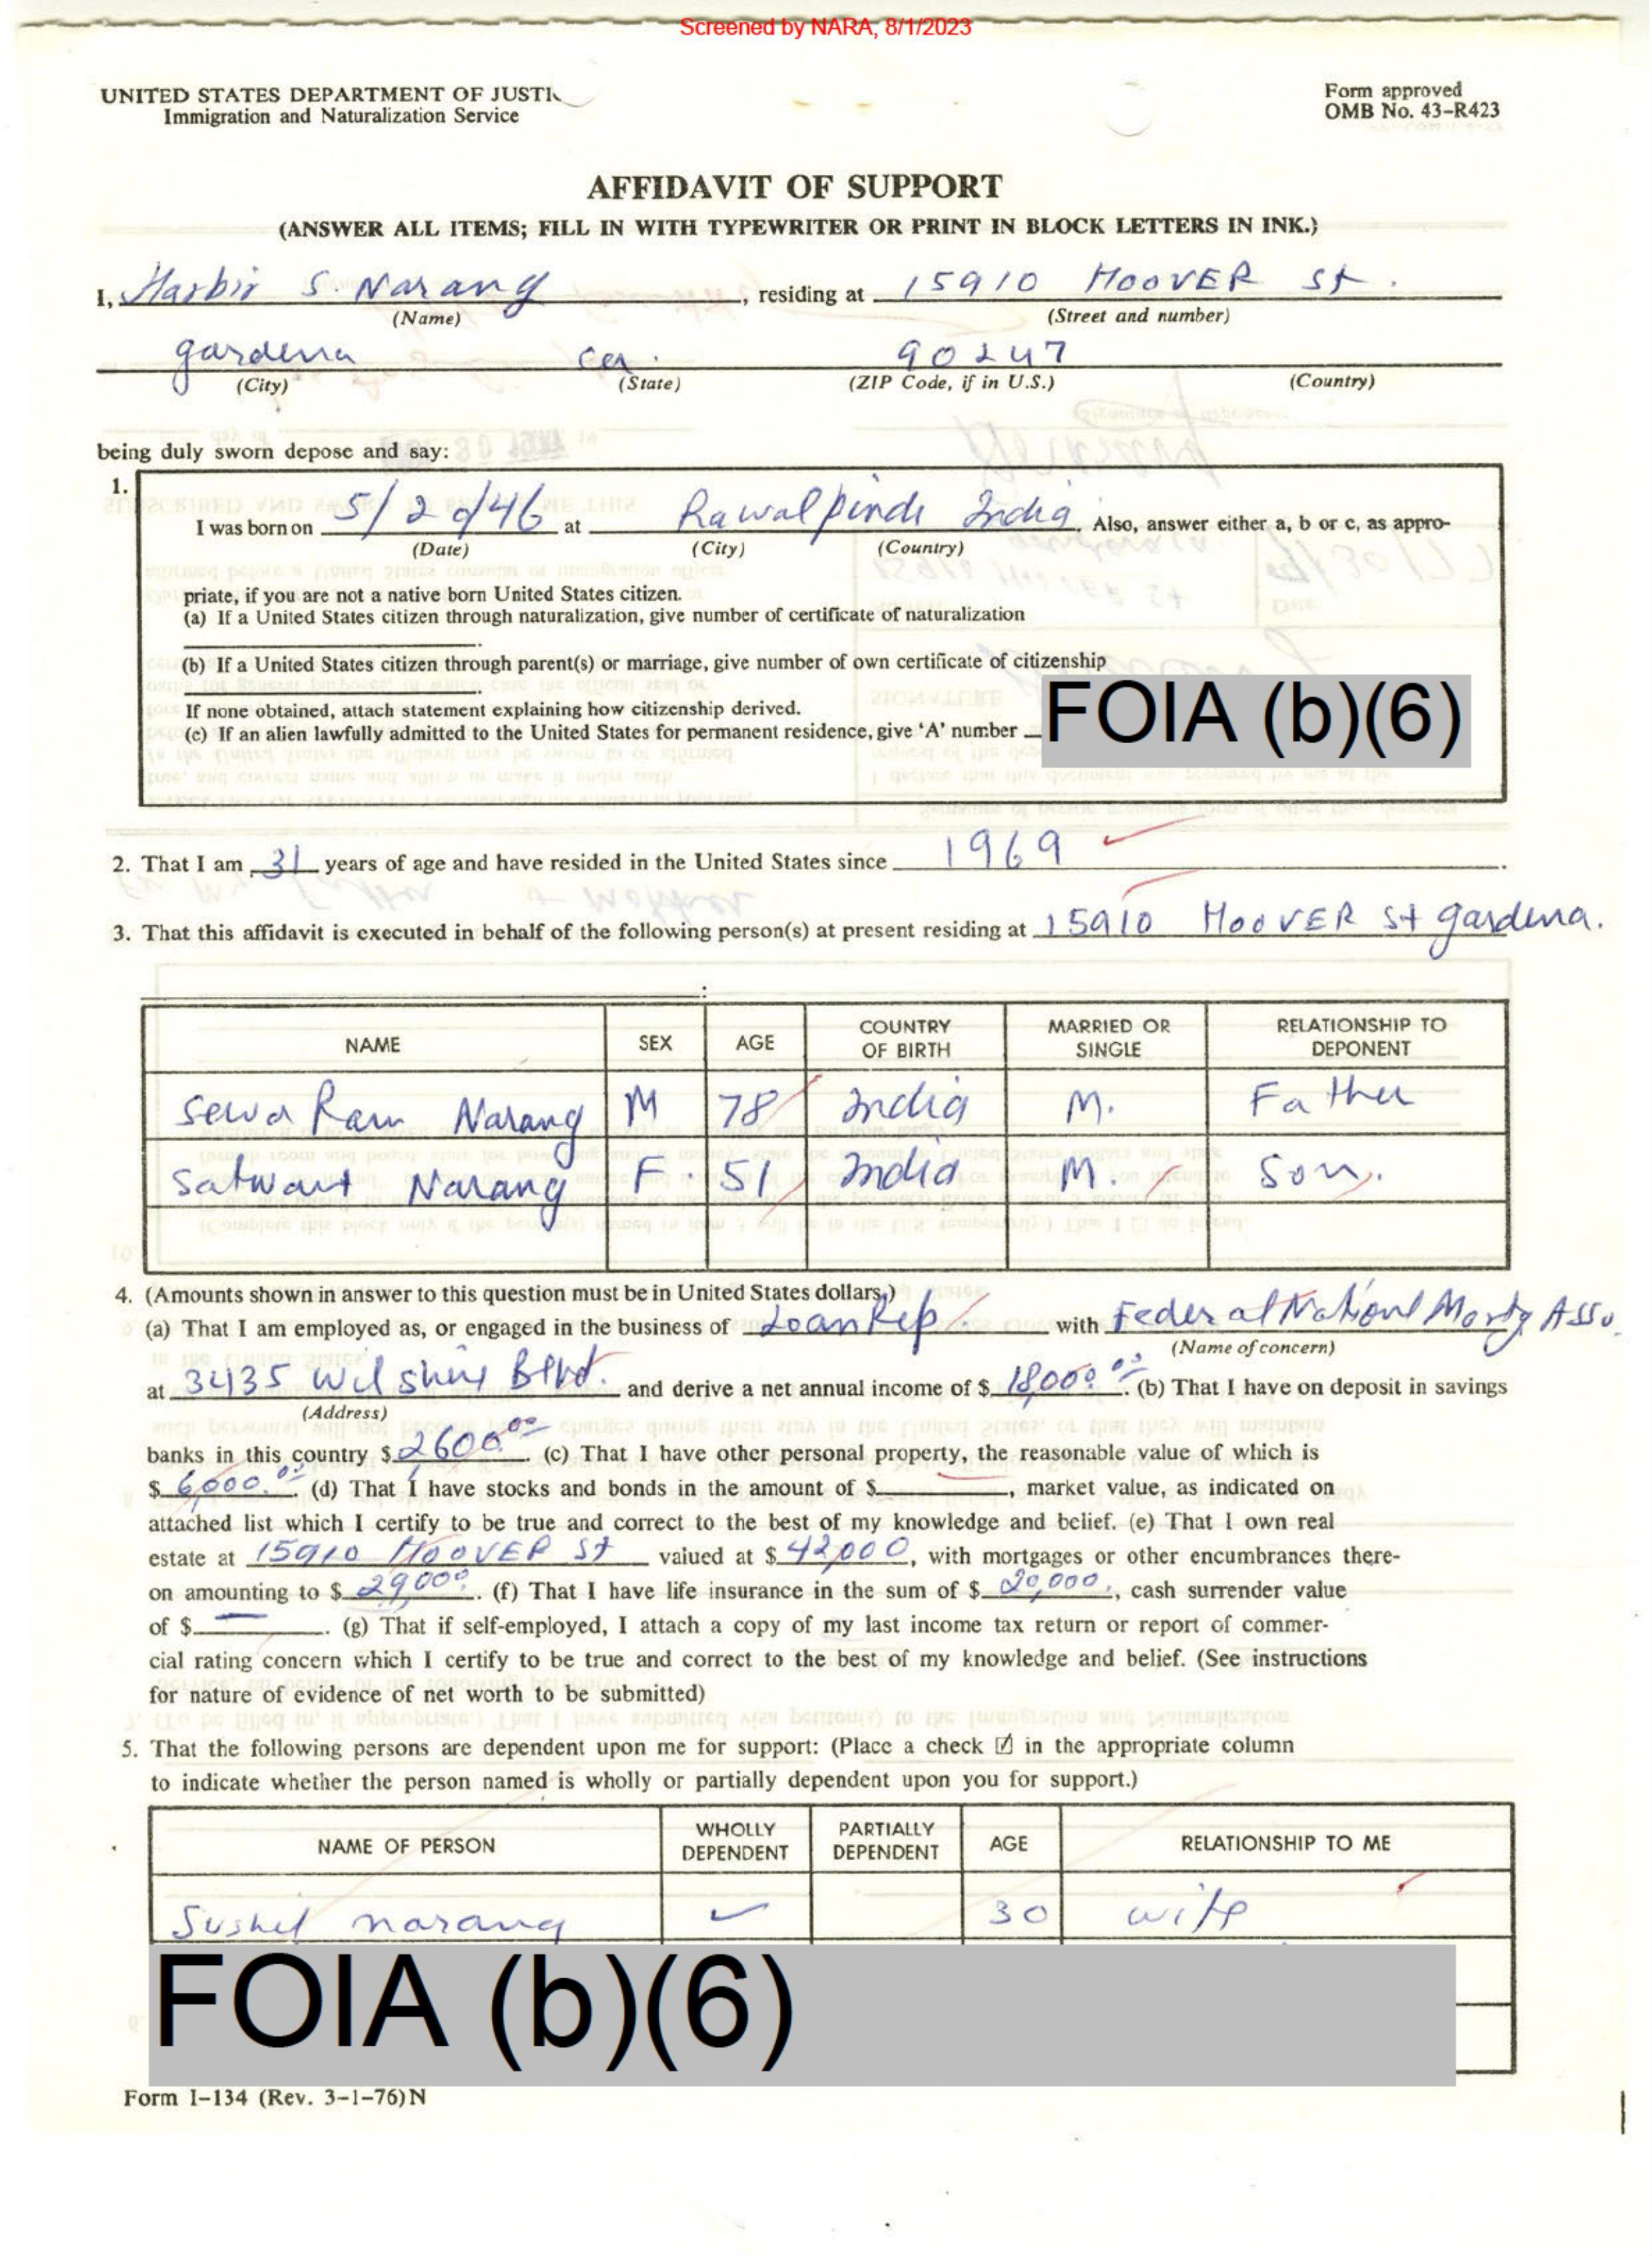 Screened by NARA, 8/1/2023
UNITED STATES DEPARTMENT OF JUSTI
Immigration and Naturalization Service
Form approved
OMB No. 43-R423
AFFIDAVIT OF SUPPORT
(ANSWER ALL ITEMS; FILL IN WITH TYPEWRITER OR PRINT IN BLOCK LETTERS IN INK.)
I, Harbir S. Narang, residing at 15910 HOOVER St.
(Name) (Street and number)
gardena ca. 90247
(City) (State) (ZIP Code, if in U.S.) (Country)
being duly sworn depose and say:
1.
I was born on 5/20/46 at Rawalpindi India. Also, answer either a, b or c, as appro-
(Date) (City) (Country)
priate, if you are not a native born United States citizen.
(a) If a United States citizen through naturalization, give number of certificate of naturalization
(b) If a United States citizen through parent(s) or marriage, give number of own certificate of citizenship
If none obtained, attach statement explaining how citizenship derived.
(c) If an alien lawfully admitted to the United States for permanent residence, give 'A' number FOIA (b)(6)
2. That I am 31 years of age and have resided in the United States since 1969.
3. That this affidavit is executed in behalf of the following person(s) at present residing at 15910 HOOVER St gardena.
:
NAME SEX AGE COUNTRY OF BIRTH MARRIED OR SINGLE RELATIONSHIP TO DEPONENT
Sewa Ram Narang M 78 India M. Father
Satwant Narang F. 51 India M. Son.
4. (Amounts shown in answer to this question must be in United States dollars.)
(a) That I am employed as, or engaged in the business of Loan Rep. with Federal National Mortg Asso.
(Name of concern)
at 3435 Wilshire Blvd. and derive a net annual income of $ 18,000.00. (b) That I have on deposit in savings
(Address)
banks in this country $ 2,600.00. (c) That I have other personal property, the reasonable value of which is
$ 6,000.00. (d) That I have stocks and bonds in the amount of $ —, market value, as indicated on
attached list which I certify to be true and correct to the best of my knowledge and belief. (e) That I own real
estate at 15910 HOOVER St valued at $ 42,000, with mortgages or other encumbrances there-
on amounting to $ 29,000. (f) That I have life insurance in the sum of $ 20,000., cash surrender value
of $ —. (g) That if self-employed, I attach a copy of my last income tax return or report of commer-
cial rating concern which I certify to be true and correct to the best of my knowledge and belief. (See instructions
for nature of evidence of net worth to be submitted)
5. That the following persons are dependent upon me for support: (Place a check ☑ in the appropriate column
to indicate whether the person named is wholly or partially dependent upon you for support.)
NAME OF PERSON WHOLLY DEPENDENT PARTIALLY DEPENDENT AGE RELATIONSHIP TO ME
Sushil narang ✓ 30 wife
FOIA (b)(6)
Form I-134 (Rev. 3-1-76)N